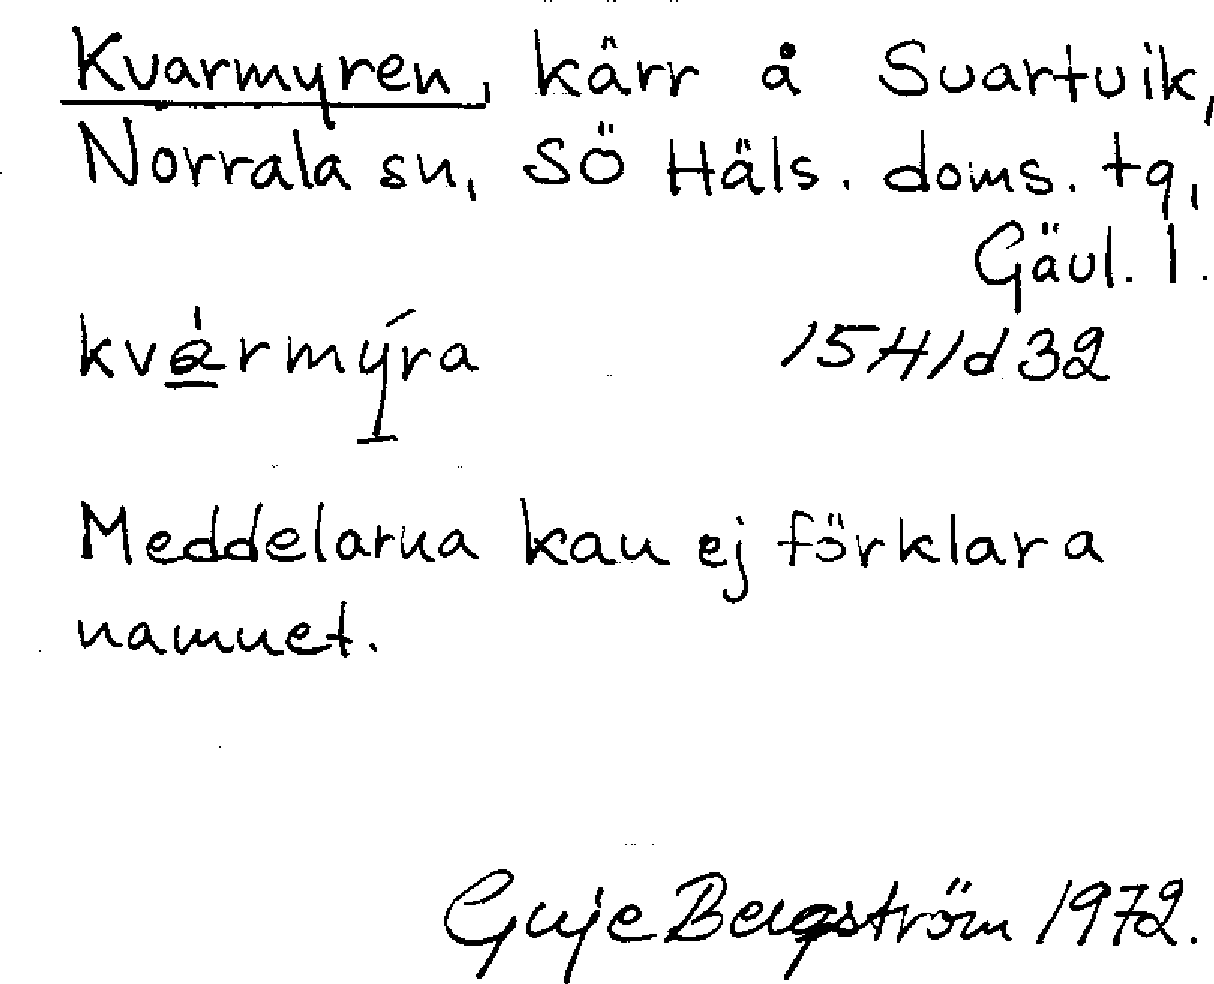 Kvarmyren, kärr å Svartvik,
Norrala sn, SÖ Häls. doms. tg,
Gävl. l.
kvármýra 15H1d32
Meddelarna kan ej förklara
namnet.
Guje Bergström 1972.